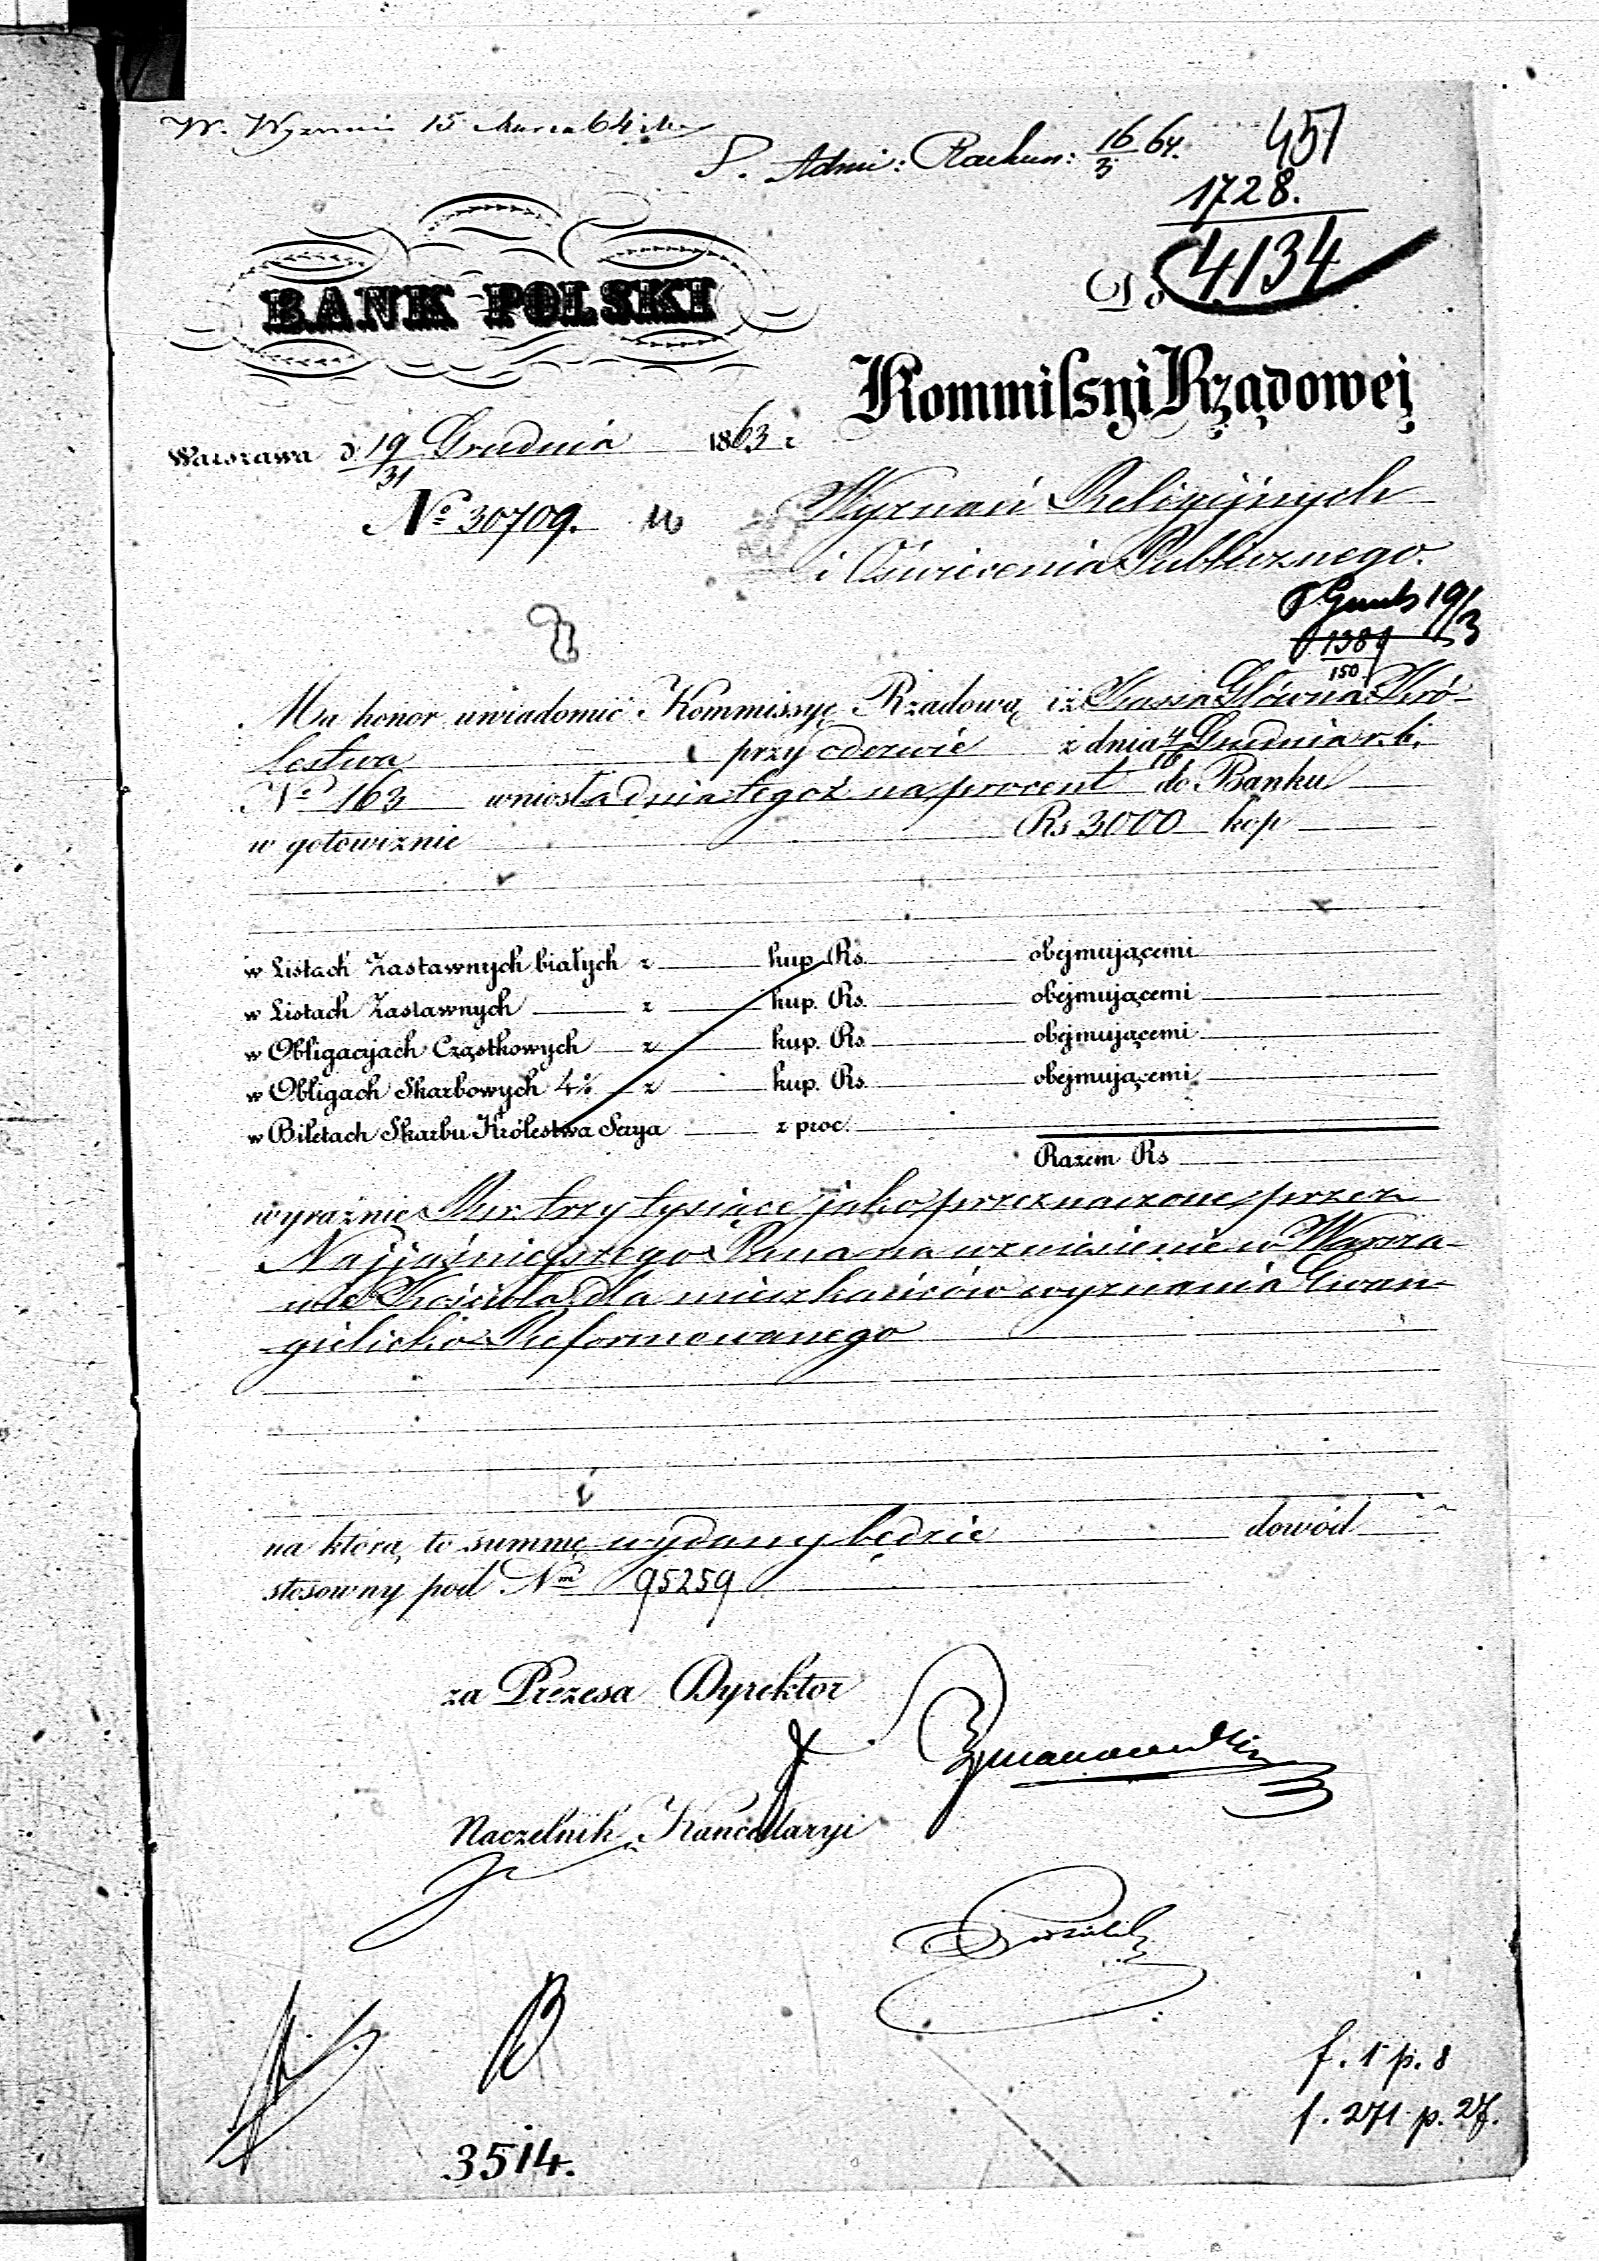 W. Wyznań 15 Marca 64
S. Admi: Rachun: 16/3 64.
451
1728.
4134
BANK POLSKI
Do
Kommissyi Rządowej
Warszawa d 19/31 Grudnia 1863 r
No 30709.
Wyznań Religijnych
i Oświecenia Publicznego.
19/3
1389
150
Ma honor uwiadomić Kommissyę Rządową iż Kassa Główna Kró-
lestwa przy odezwie z dnia 4/16 Grudnia r. b.
No 163 wniosła dnia tegoż na procent do Banku
w gotowiznie Rs 3000 kop
w Listach Zastawnych białych z kup. Rs. obejmującemi
w Listach Zastawnych z kup. Rs. obejmującemi
w Obligacyjach Cząstkowych z kup. Rs obejmującemi
w Obligach Skarbowych 4% z kup. Rs. obejmującemi
w Biletach Skarbu Królestwa Serya z proc.
Razem Rs
wyraźnie Rsr. trzy tysiące jako przeznaczone przez
Najjaśniejszego Pana na wzniesienie w Warsza-
wie Kościoła dla mieszkańców wyznania Ewan-
gielicko Reformowanego
na którą to summę wydany będzie dowód
stosowny pod Nm 95259
za Prezesa Dyrektor
Naczelnik Kancellaryi
f. 1 p. 8
f. 271 p. 27.
3514.